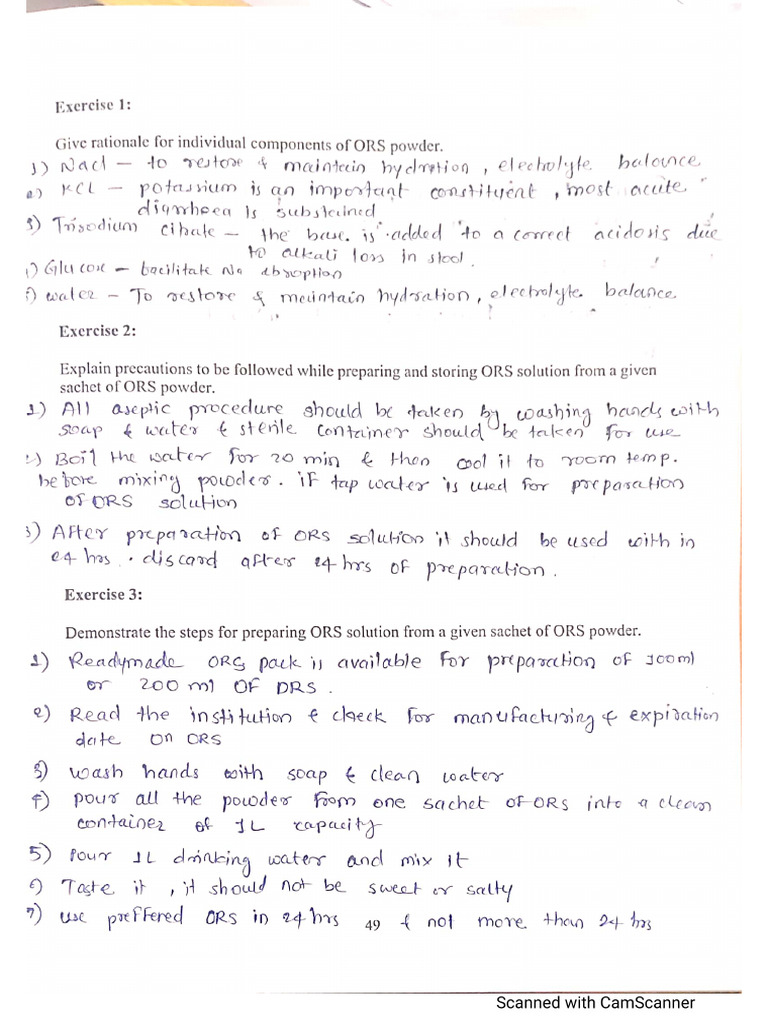 Exercise 1:
Give rationale for individual components of ORS powder.
1) Nacl – to restore & maintain hydration, elecholyte balance
2) KCL – potassium is an important constituent, most acute
diarrhoea is substained
3) Trisodium citrate – the base is added to a correct acidosis due
to alkali loss in stool.
) Glucose – bacilitate Na abroption
) water – To restore & maintain hydration, electrolyte balance
Exercise 2:
Explain precautions to be followed while preparing and storing ORS solution from a given
sachet of ORS powder.
1) All aseptic procedure should be taken by washing hands with
soap & water & sterile container should be taken for use
2) Boil the water for 20 min & then cool it to room temp.
before mixing powder. if tap water is used for preparation
of ORS solution
3) After preparation of ORS solution it should be used with in
24 hrs. discard after 24 hrs of preparation.
Exercise 3:
Demonstrate the steps for preparing ORS solution from a given sachet of ORS powder.
1) Readymade ORS pack is available for preparation of 100ml
or 200 ml OF ORS.
2) Read the institution & check for manufacturing & expiration
date on ORS
3) wash hands with soap & clean water
4) pour all the powder from one sachet of ORS into a clean
container of 1L capacity
5) Pour 1L drinking water and mix it
6) Taste it, it should not be sweet or salty
7) use preffered ORS in 24 hrs & not more than 24 hrs
49
Scanned with CamScanner